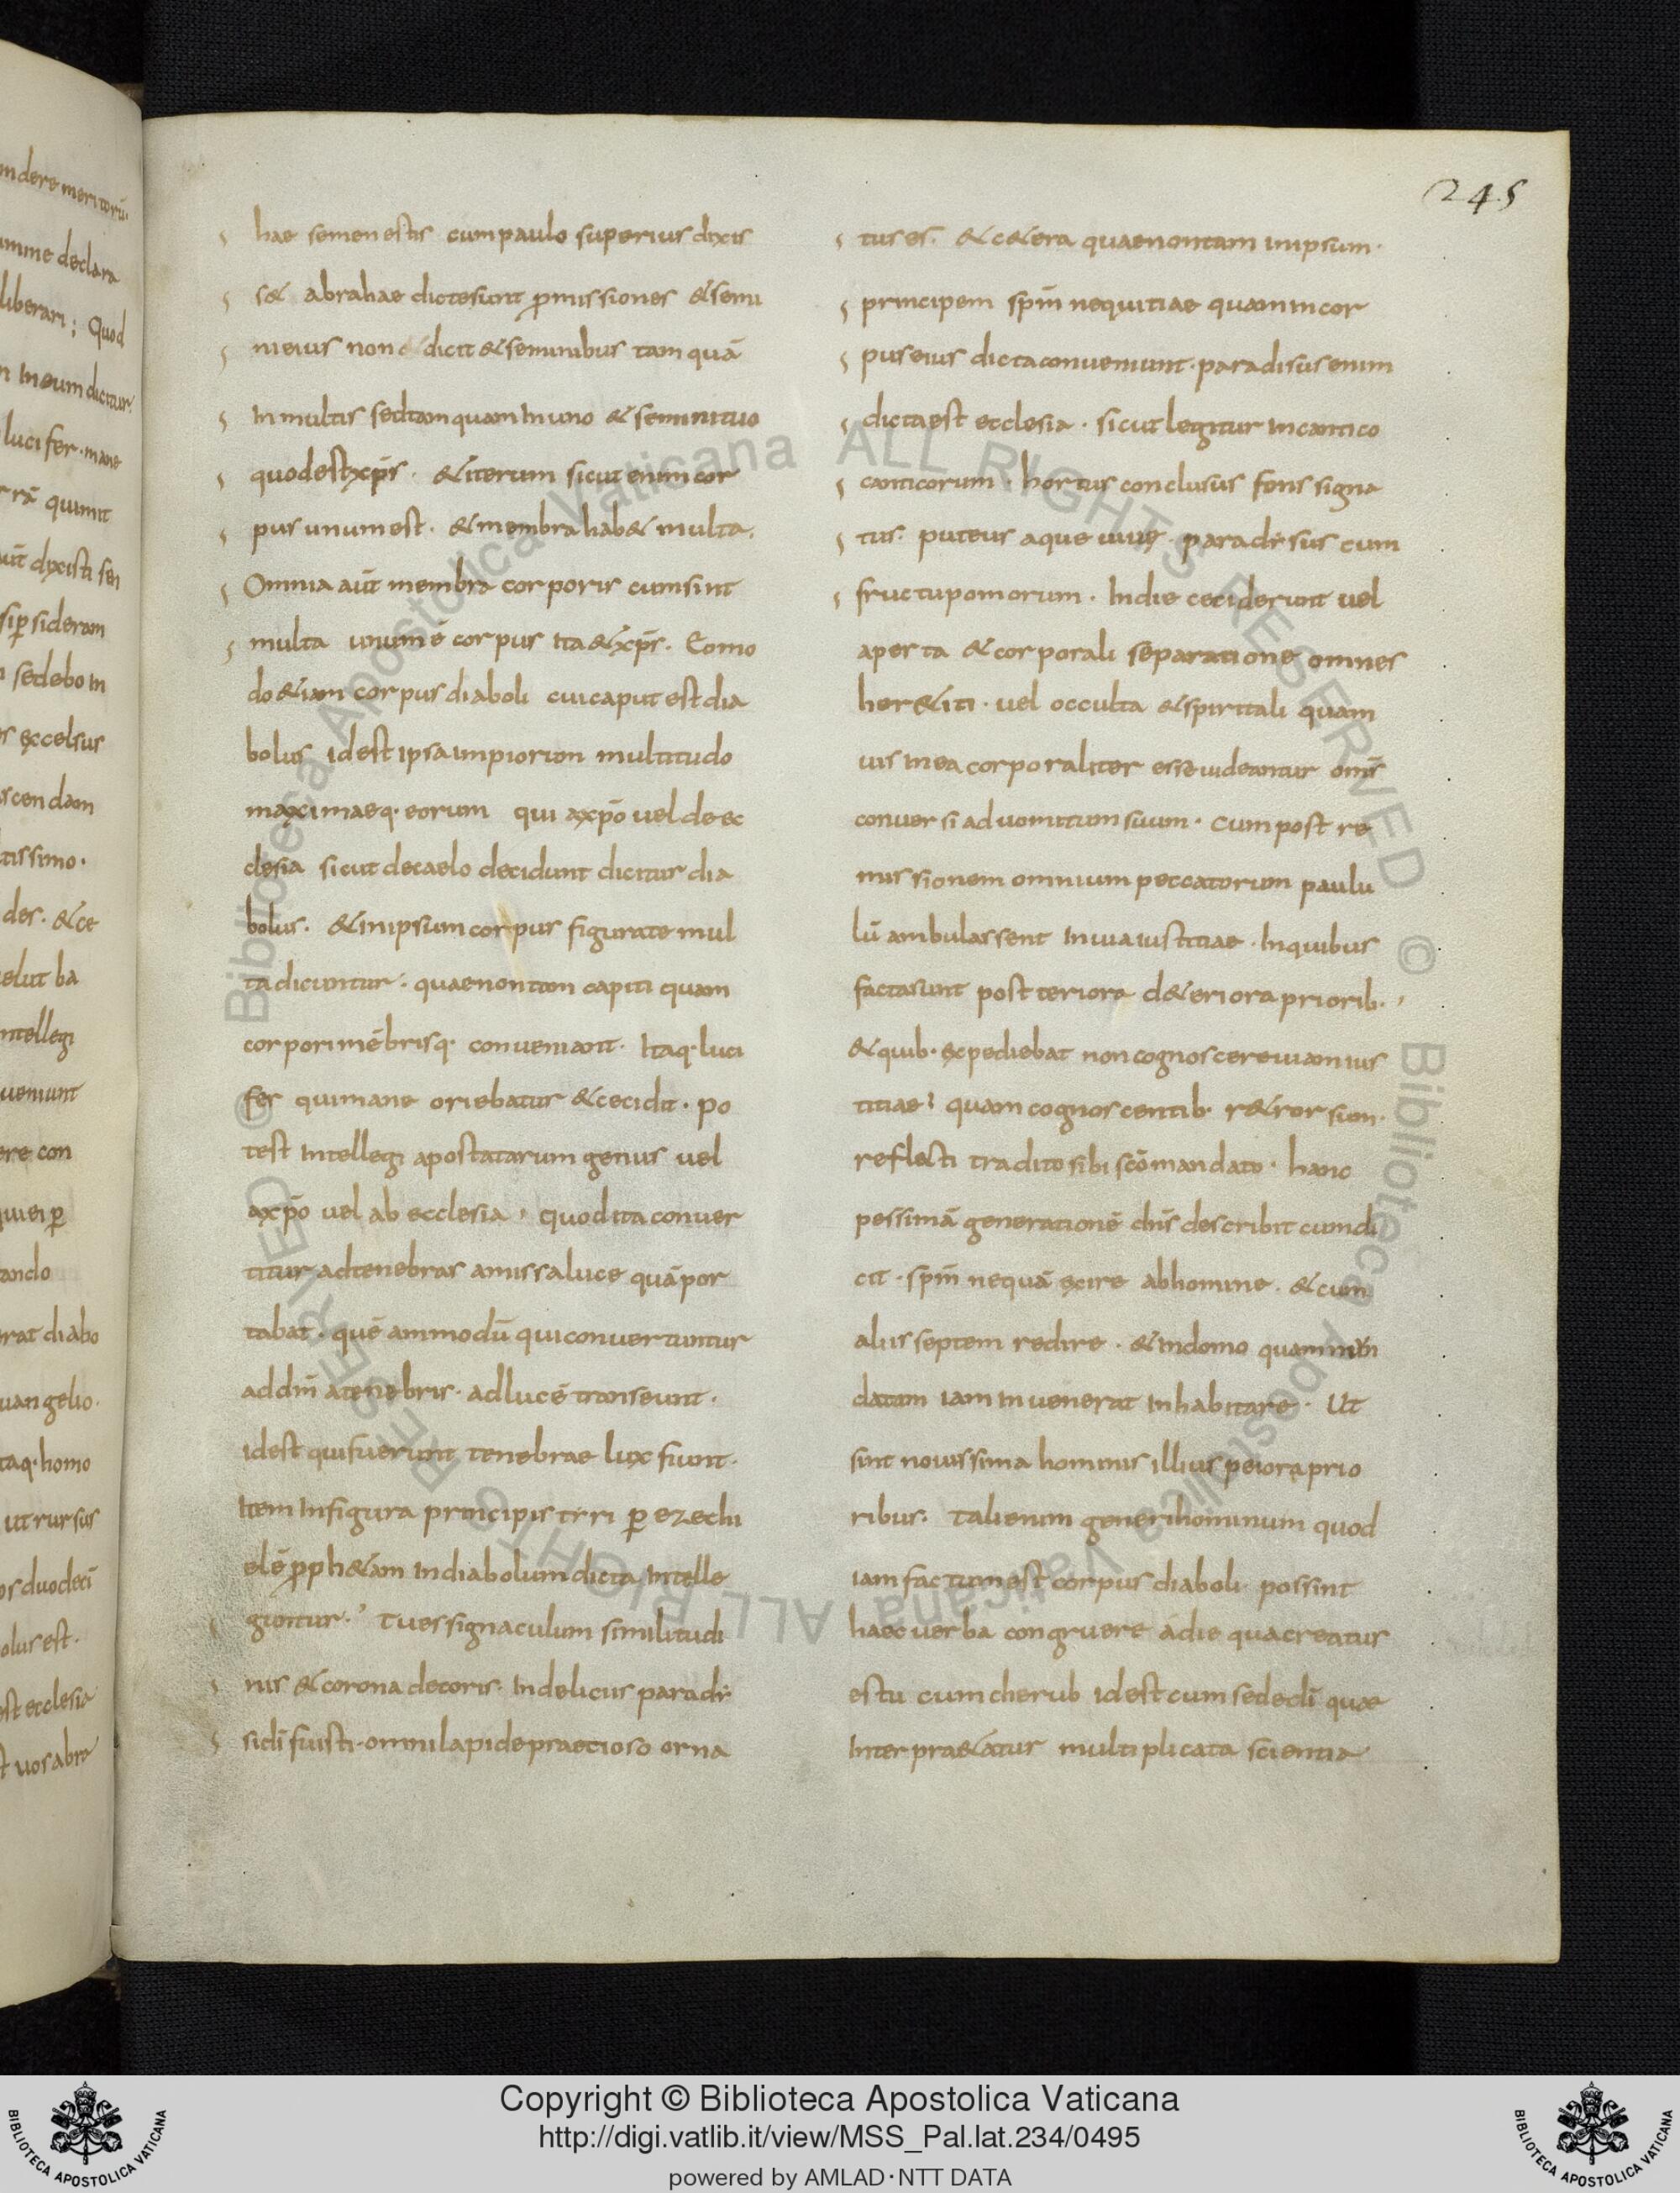 245
hae semen estis cum paulo superius dixis
s& abrahae dictesunt ꝓmissiones &semi
nieius non dicit &seminibus tam quā
In multis sedtamquam In uno & seminituo
quodestxp̄s. &iterum sicut enim cor
pus unum est. &membra hab& multa.
Omnia aūt membra corporis cumsint
multa unum ē corpus ita&xp̄s. Eomo
do&iam corpus diaboli cuicaput est dia
bolus idest ipsa impiorum multitudo
maximaeq. eorum qui axp̄o vel de ec
clesia sicut decaelo decidunt dicitur dia
bolus. &inipsum corpus figurate mul
ta dicuntur. quaenontam capiti quam
corporimēbrisq. conveniant. Itaq. luci
fer qui mane oriebatur &cecidit. po
test Intellegi apostatarum genus vel
axp̄o vel ab ecclesia, quod ita conver
titur adtenebras amissaluce quāpor
tabat. quē ammodū quiconvertuntur
addm̄ atenebris. adlucē transeunt.
idest quifuerunt tenebrae lux fiunt.
Item Infigura principis tiri ꝑ ezechi
elē ꝓph&am Indiabolum dicta Intelle
guntur. Tues signaculum similitudi
nis &corona decoris. Indeliciis paradi
sidī fuisti. omnilapide praetioso orna
tus es. &c&era quaenontam inipsum.
principem sp̄m nequitiae quam incor
pus eius dictaconueniunt. paradisus enim
dictaest ecclesia. sicut legitur Incantico
canticorum. hortus conclusus fons signa
tus. puteus aque uiuę. paradisus cum
fructupomorum. Indie ceciderunt vel
aperta &corporali separatione omnes
her&iti. vel occulta &spiritali quam
uis Inea corporaliter esse uideantur om̄s
conversi ad uomitum suum. Cum post re
missionem omnium peccatorum paulu
lū ambulassent Inuiaiustitiae. Inquibus
factasunt post teriora d&eriora priorib.,
&quib. expediebat non cognoscere uiam ius
titiae? quam cognoscentib. r&rorsum.
reflecti tradito sibi sc̄omandato. hanc
pessimā generationē dn̄s describit cumdi
cit. sp̄m nequā exire abhomine. &cum
aliis septem redire. &Indomo quam mun
datam iam Invenerat Inhabitare. Ut
sint nouissima hominis illius peiora prio
ribus. Talienim generihominum quod
iam factum est corpus diaboli possint
haec verba congruere ādie qua creatus
estu cum cherub idest cum sededī quae
Interpra&atur multiplicata scientia
Copyright © Biblioteca Apostolica Vaticana
http://digi.vatlib.it/view/MSS_Pal.lat.234/0495
powered by AMLAD·NTT DATA